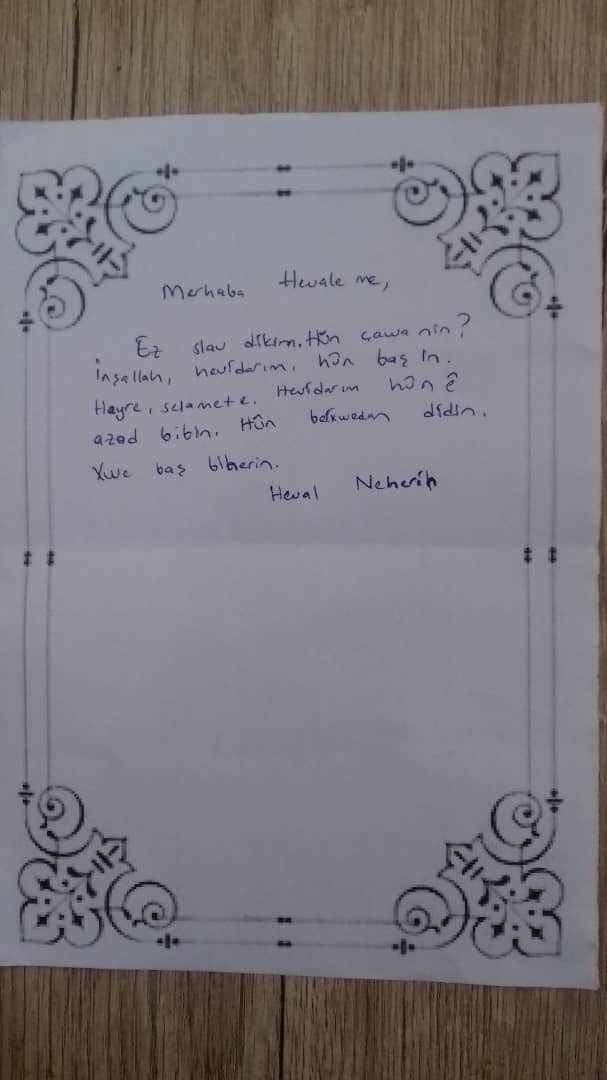 Merhaba Hevale me,
Ez slav dıkım. Hûn çawa nin?
İnşallah, hevîdarım, hûn baş in.
Hayre, selamete. Hevîdarım hûn ê
azad bibin. Hûn berxwedan dıdin.
Xwe baş bıherin.
Heval Neherîh